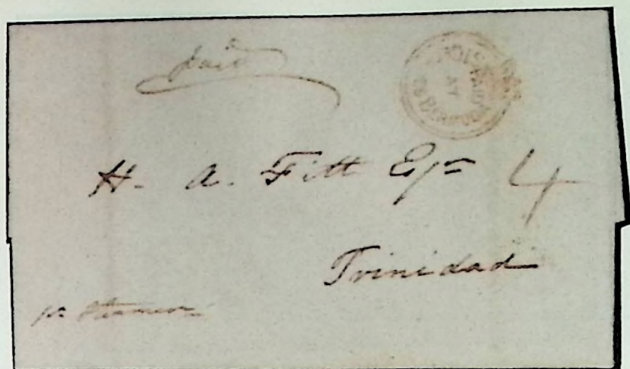 paid
PAID
AT
BARBADOES
H. A. Fitt Esqr 4
Trinidad
pr Steamer